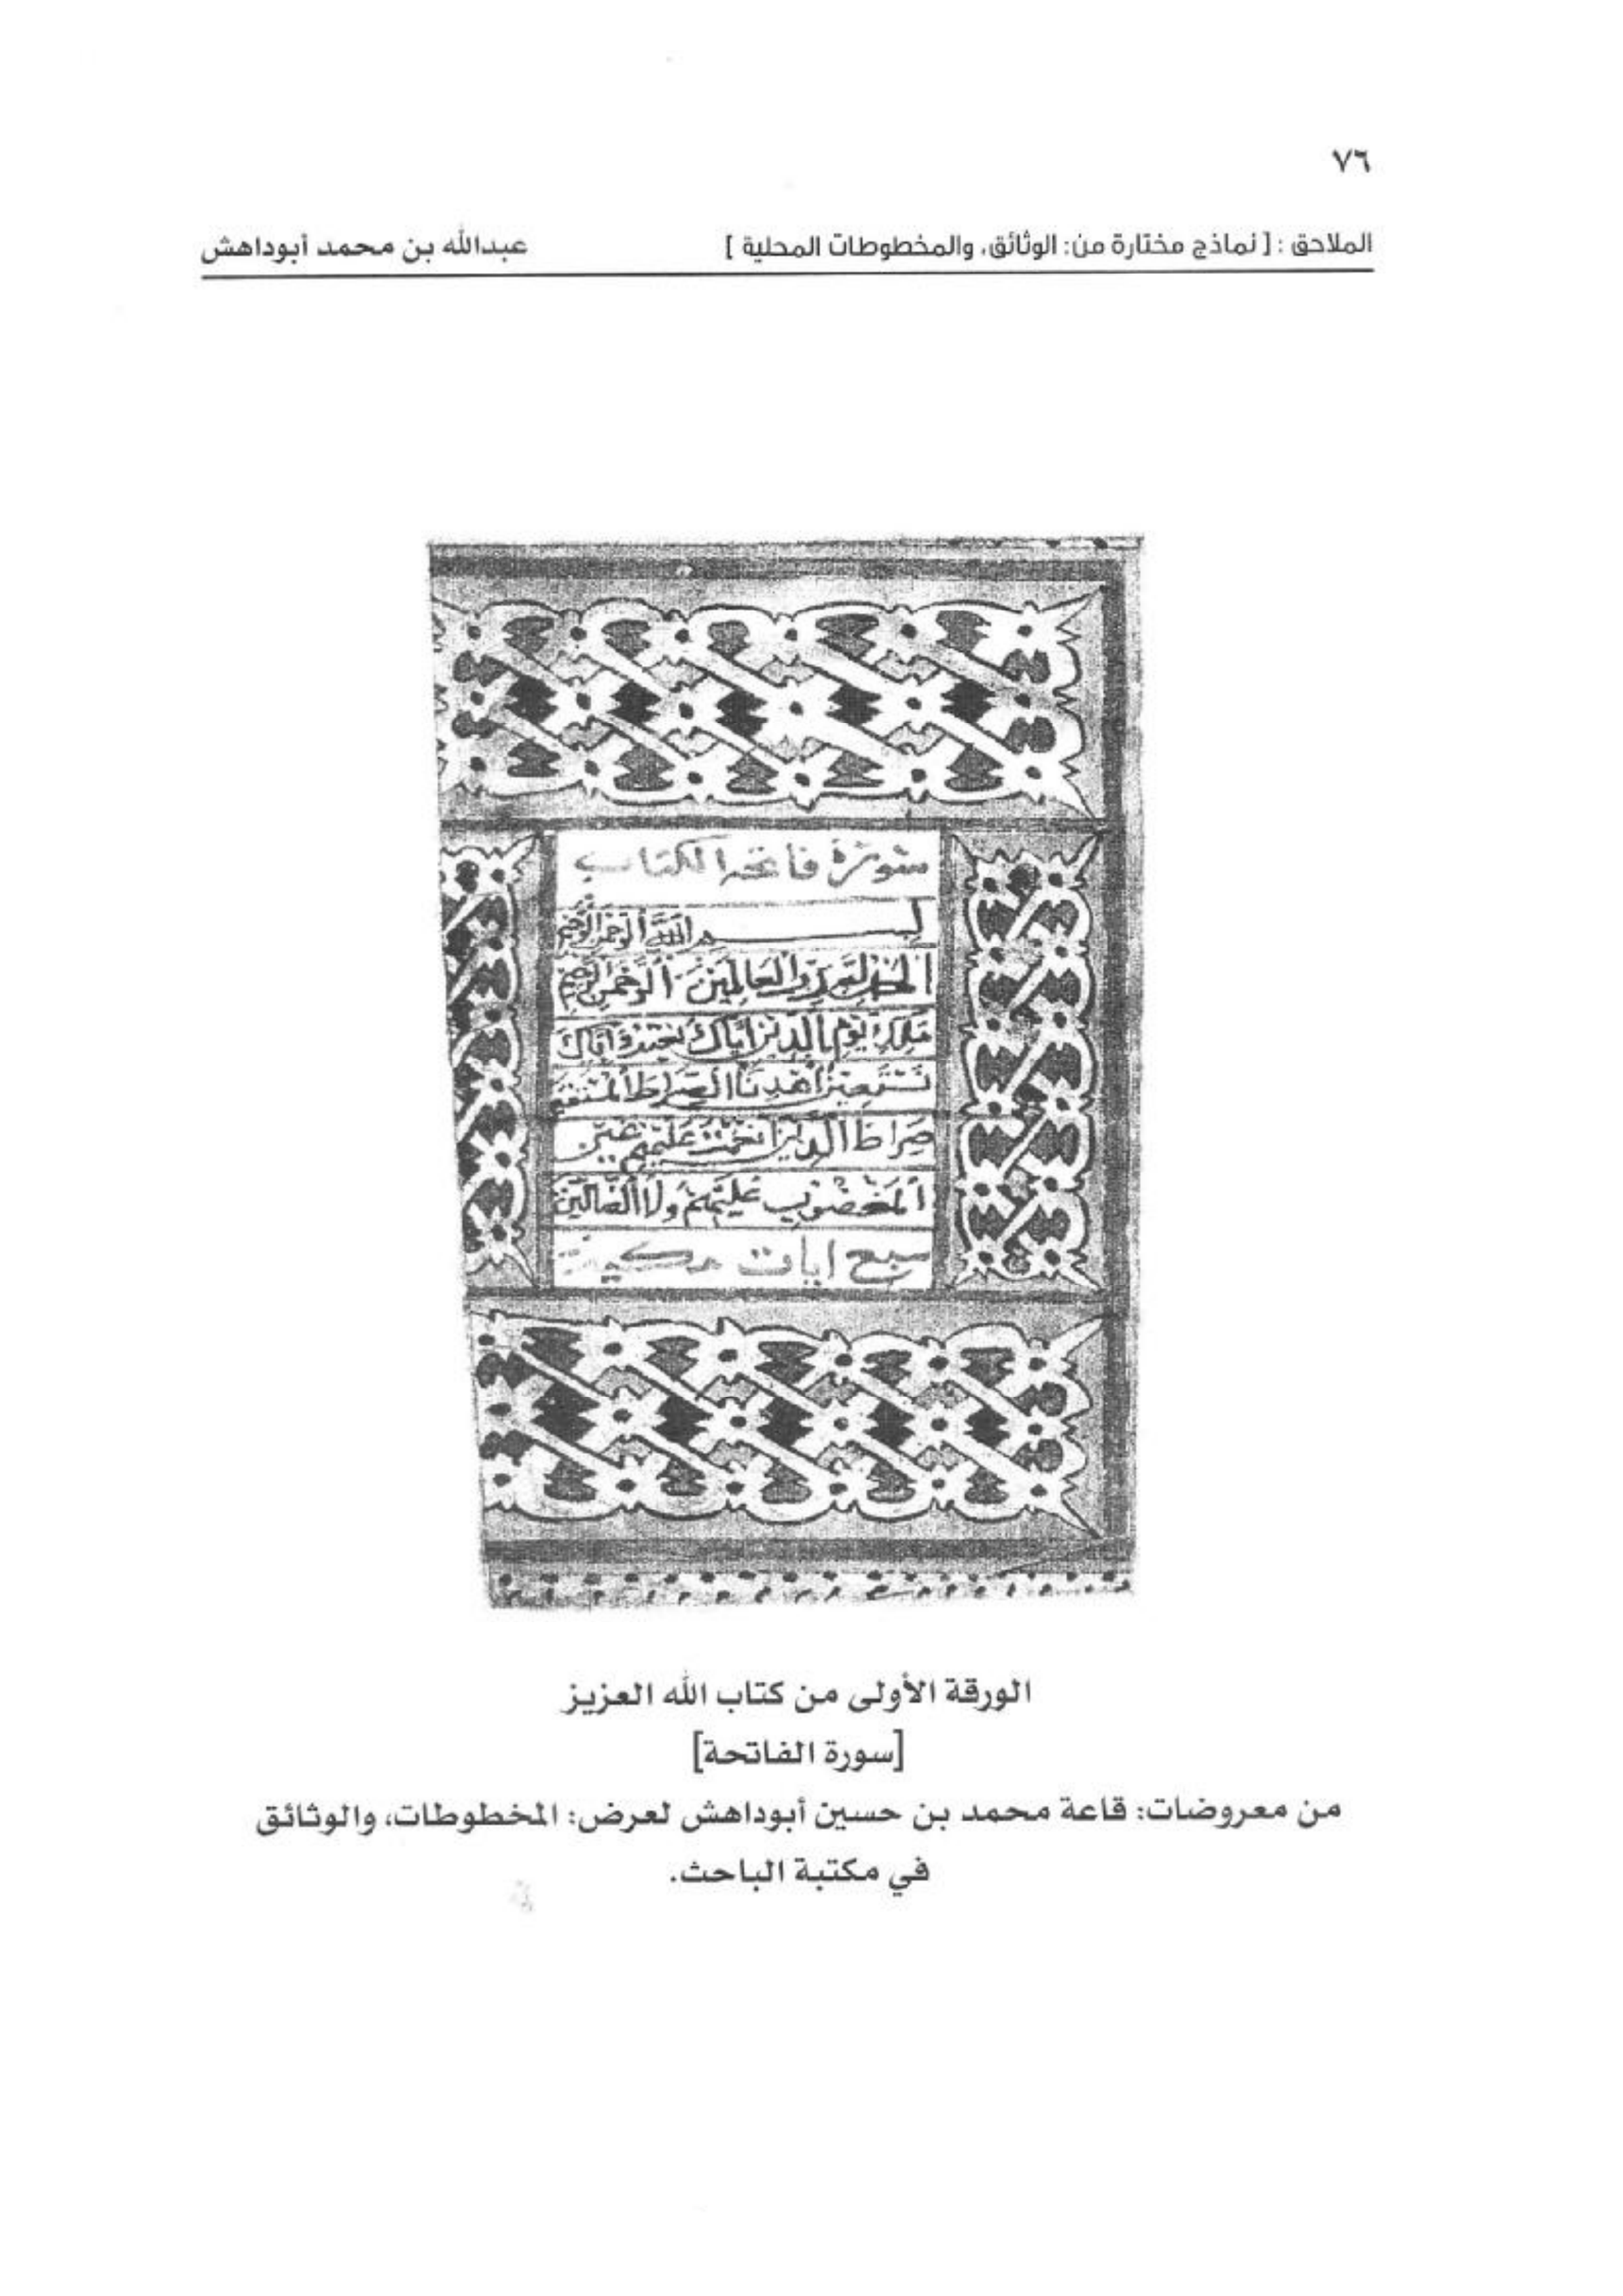 ٧٦
الملاحق : [ نماذج مختارة من: الوثائق، والمخطوطات المحلية ] عبدالله بن محمد أبوداهش
سورة فاتحة الكتاب
بسم الله الرحمن الرحيم
الحمد لله رب العالمين الرحمن الرحيم
ملك يوم الدين اياك نعبد واياك
نستعين اهدنا الصراط المستقيم
صراط الذين انعمت عليهم غير
المغضوب عليهم ولا الضالين
سبع ايات مكية
الورقة الأولى من كتاب الله العزيز
[سورة الفاتحة]
من معروضات: قاعة محمد بن حسين أبوداهش لعرض: المخطوطات، والوثائق
في مكتبة الباحث.